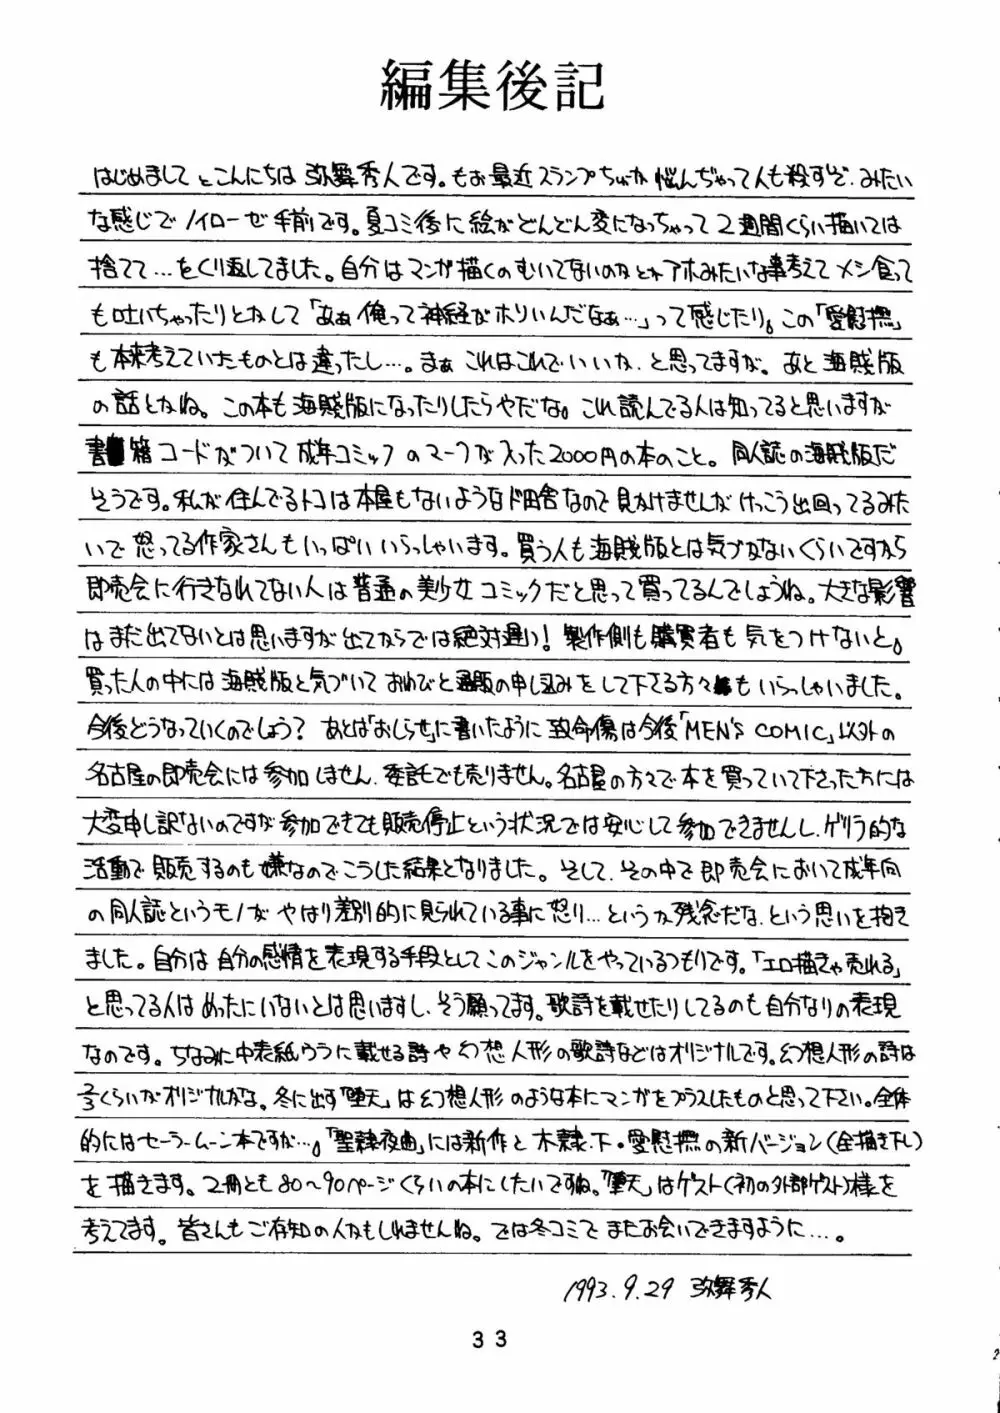 編集後記
はじめまして とこんにちは 弥舞秀人です。もお最近スランプちゅか 悩んぢゃって人も殺すぞ、みたい
な感じでノイローゼ手前です。夏コミ後に絵がどんどん変になっちゃって2週間くらい描いては
捨てて…をくり返してました。自分はマンガ描くのむいてないのかとかアホみたいな事考えてメシ食って
も吐いちゃったりとかして「あぁ俺って神経がホソいんだなぁ…」って感じたり。この「愛慰撫」
も本来考えていたものとは違ったし…。まぁ これはこれでいいか、と思ってますが。あと 海賊版
の話とかね。この本も海賊版になったりしたらやだな。これ読んでる人は知ってると思いますが
書籍コードがついて成年コミックのマークが入った2000円の本のこと。同人誌の海賊版だ
そうです。私が住んでるトコは本屋もないようなド田舎なので見かけませんがけっこう出回ってるみた
いで怒ってる作家さんもいっぱいいらっしゃいます。買う人も海賊版とは気づかないくらいですから
即売会に行きなれてない人は普通の美少女コミックだと思って買ってるんでしょうね。大きな影響
はまだ出てないとは思いますが出てからでは絶対遅い！製作側も購買者も気をつけないと。
買った人の中には海賊版と気づいておわびと通販の申し込みをして下さる方々もいらっしゃいました。
今後どうなっていくのでしょう？ あとは「おしらせ」に書いたように致命傷は今後「MEN'S COMIC」以外の
名古屋の即売会には参加しません、委託でも売りません。名古屋の方々で本を買っていて下さった方には
大変申し訳ないのですが参加できても販売停止という状況では安心して参加できませんし、ゲリラ的な
活動で販売するのも嫌なのでこうした結果となりました。そして、その中で即売会において成年向
の同人誌というモノが やはり差別的に見られている事に怒り…というか残念だな、という思いを抱き
ました。自分は自分の感情を表現する手段としてこのジャンルをやっているつもりです。「エロ描きゃ売れる」
と思ってる人はめったにいないとは思いますし、そう願ってます。歌詩を載せたりしてるのも自分なりの表現
なのです。ちなみに中表紙ウラに載せる詩や幻想人形の歌詩などはオリジナルです。幻想人形の詩は
2/3くらいがオリジナルかな。冬に出す「堕天」は幻想人形のような本にマンガをプラスしたものと思って下さい。全体
的にはセーラームーン本ですが…。「聖隷夜曲」には新作と 木隷下・愛慰撫の新バージョン(全描き下し)
を描きます。2冊とも80〜90ページくらいの本にしたいですね。「堕天」はゲスト(初の外部ゲスト)様を
考えてます。皆さんもご存知の人かもしれませんね。では冬コミでまたお会いできますように…。
1993.9.29 弥舞秀人
33